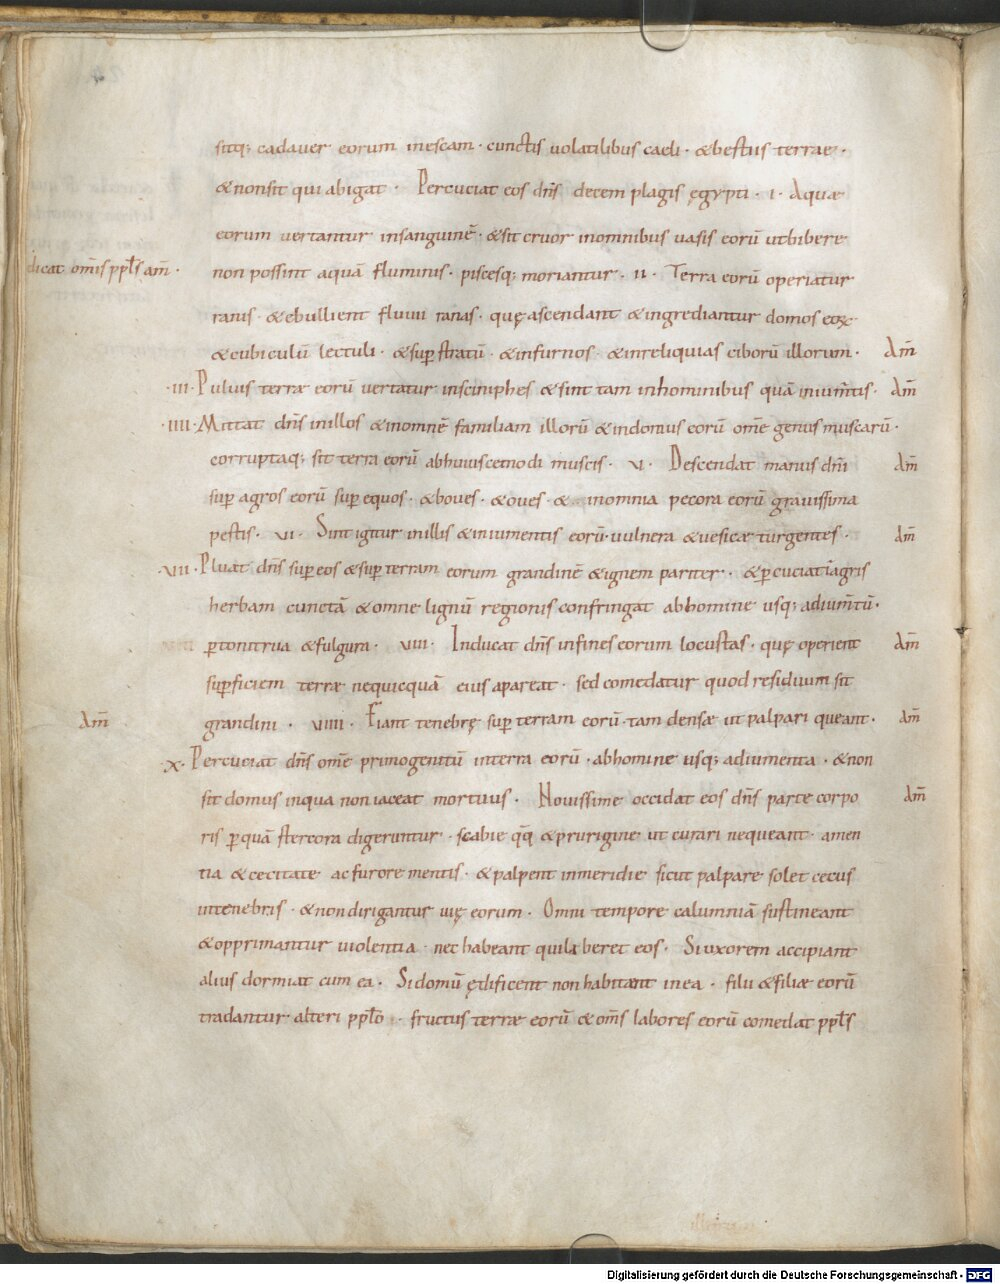 sitq; cadauer eorum inescam · cunctis uolatilibus caeli · &bestiis terrae ·
&nonsit qui abigat · Percuciat eos dn̄s decem plagis ęgypti · i · Aquæ
eorum uertantur insanguinē · &sit cruor inomnibus uasis eorū utbibere
dicat om̄is ppl̄s am̄ ·
non possint aquā fluminis · piscesq; moriantur · ii · Terra eorū operiatur
ranis · &ebullient fluuii ranas · quę ascendant &ingrediantur domos eoꝝ
&cubiculū lectuli · &suꝑ stratū · &infurnos · &inreliquias ciborū illorum · Am̄
· iii · Puluis terræ eorū uertatur insciniphes &sint tam inhominibus quā inium̄tis · Am̄
· iiii · Mittat dn̄s inillos &inomnē familiam illorū &indomus eorū om̄e genus muscarū ·
corruptaq; sit terra eorū abhuiuscemodi muscis · vi · Descendat manus dn̄i Am̄
suꝑ agros eorū suꝑ equos · &boues · &oues · & inomnia pecora eorū grauissima
pestis · vii · Sint igitur inillis &iniumentis eorū uulnera &uesicæ turgentes · Am̄
· viii · Pluat dn̄s suꝑ eos &suꝑ terram eorum grandinē &ignem pariter · &ꝑcuciat īagris
herbam cunctā &omne lignū regionis confringat abhomine usq; adium̄tū ·
ꝑtonitrua &fulgura · viiii · Inducat dn̄s infines eorum locustas · quę operient Am̄
suꝑficiem terræ nequicquā eius apareat · sed comedatur quod residuum sit
Am̄
grandini · viiii · Fiant tenebrę suꝑ terram eorū tam densæ ut palpari queant · Am̄
· x · Percuciat dn̄s om̄e primogenitū interra eorū · abhomine usq; adiumenta · &non
sit domus inqua non iaceat mortuus · Nouissime occidat eos dn̄s parte corpo Am̄
ris ꝑquā stercora digeruntur · scabie q̄q̄ &prurigine ut curari nequeant · amen
tia &cecitate ac furore mentis · &palpent inmeridie sicut palpare solet cecus
intenebris · &non dirigantur uię eorum · Omni tempore calumniā sustineant
&opprimantur uiolentia nec habeant qui liberet eos · Si uxorem accipiant
alius dormiat cum ea · Si domū ędificent non habitent in ea · filii &filiæ eorū
tradantur alteri ppl̄o · fructus terræ eorū &om̄s labores eorū comedat ppl̄s
Digitalisierung gefördert durch die Deutsche Forschungsgemeinschaft - DFG